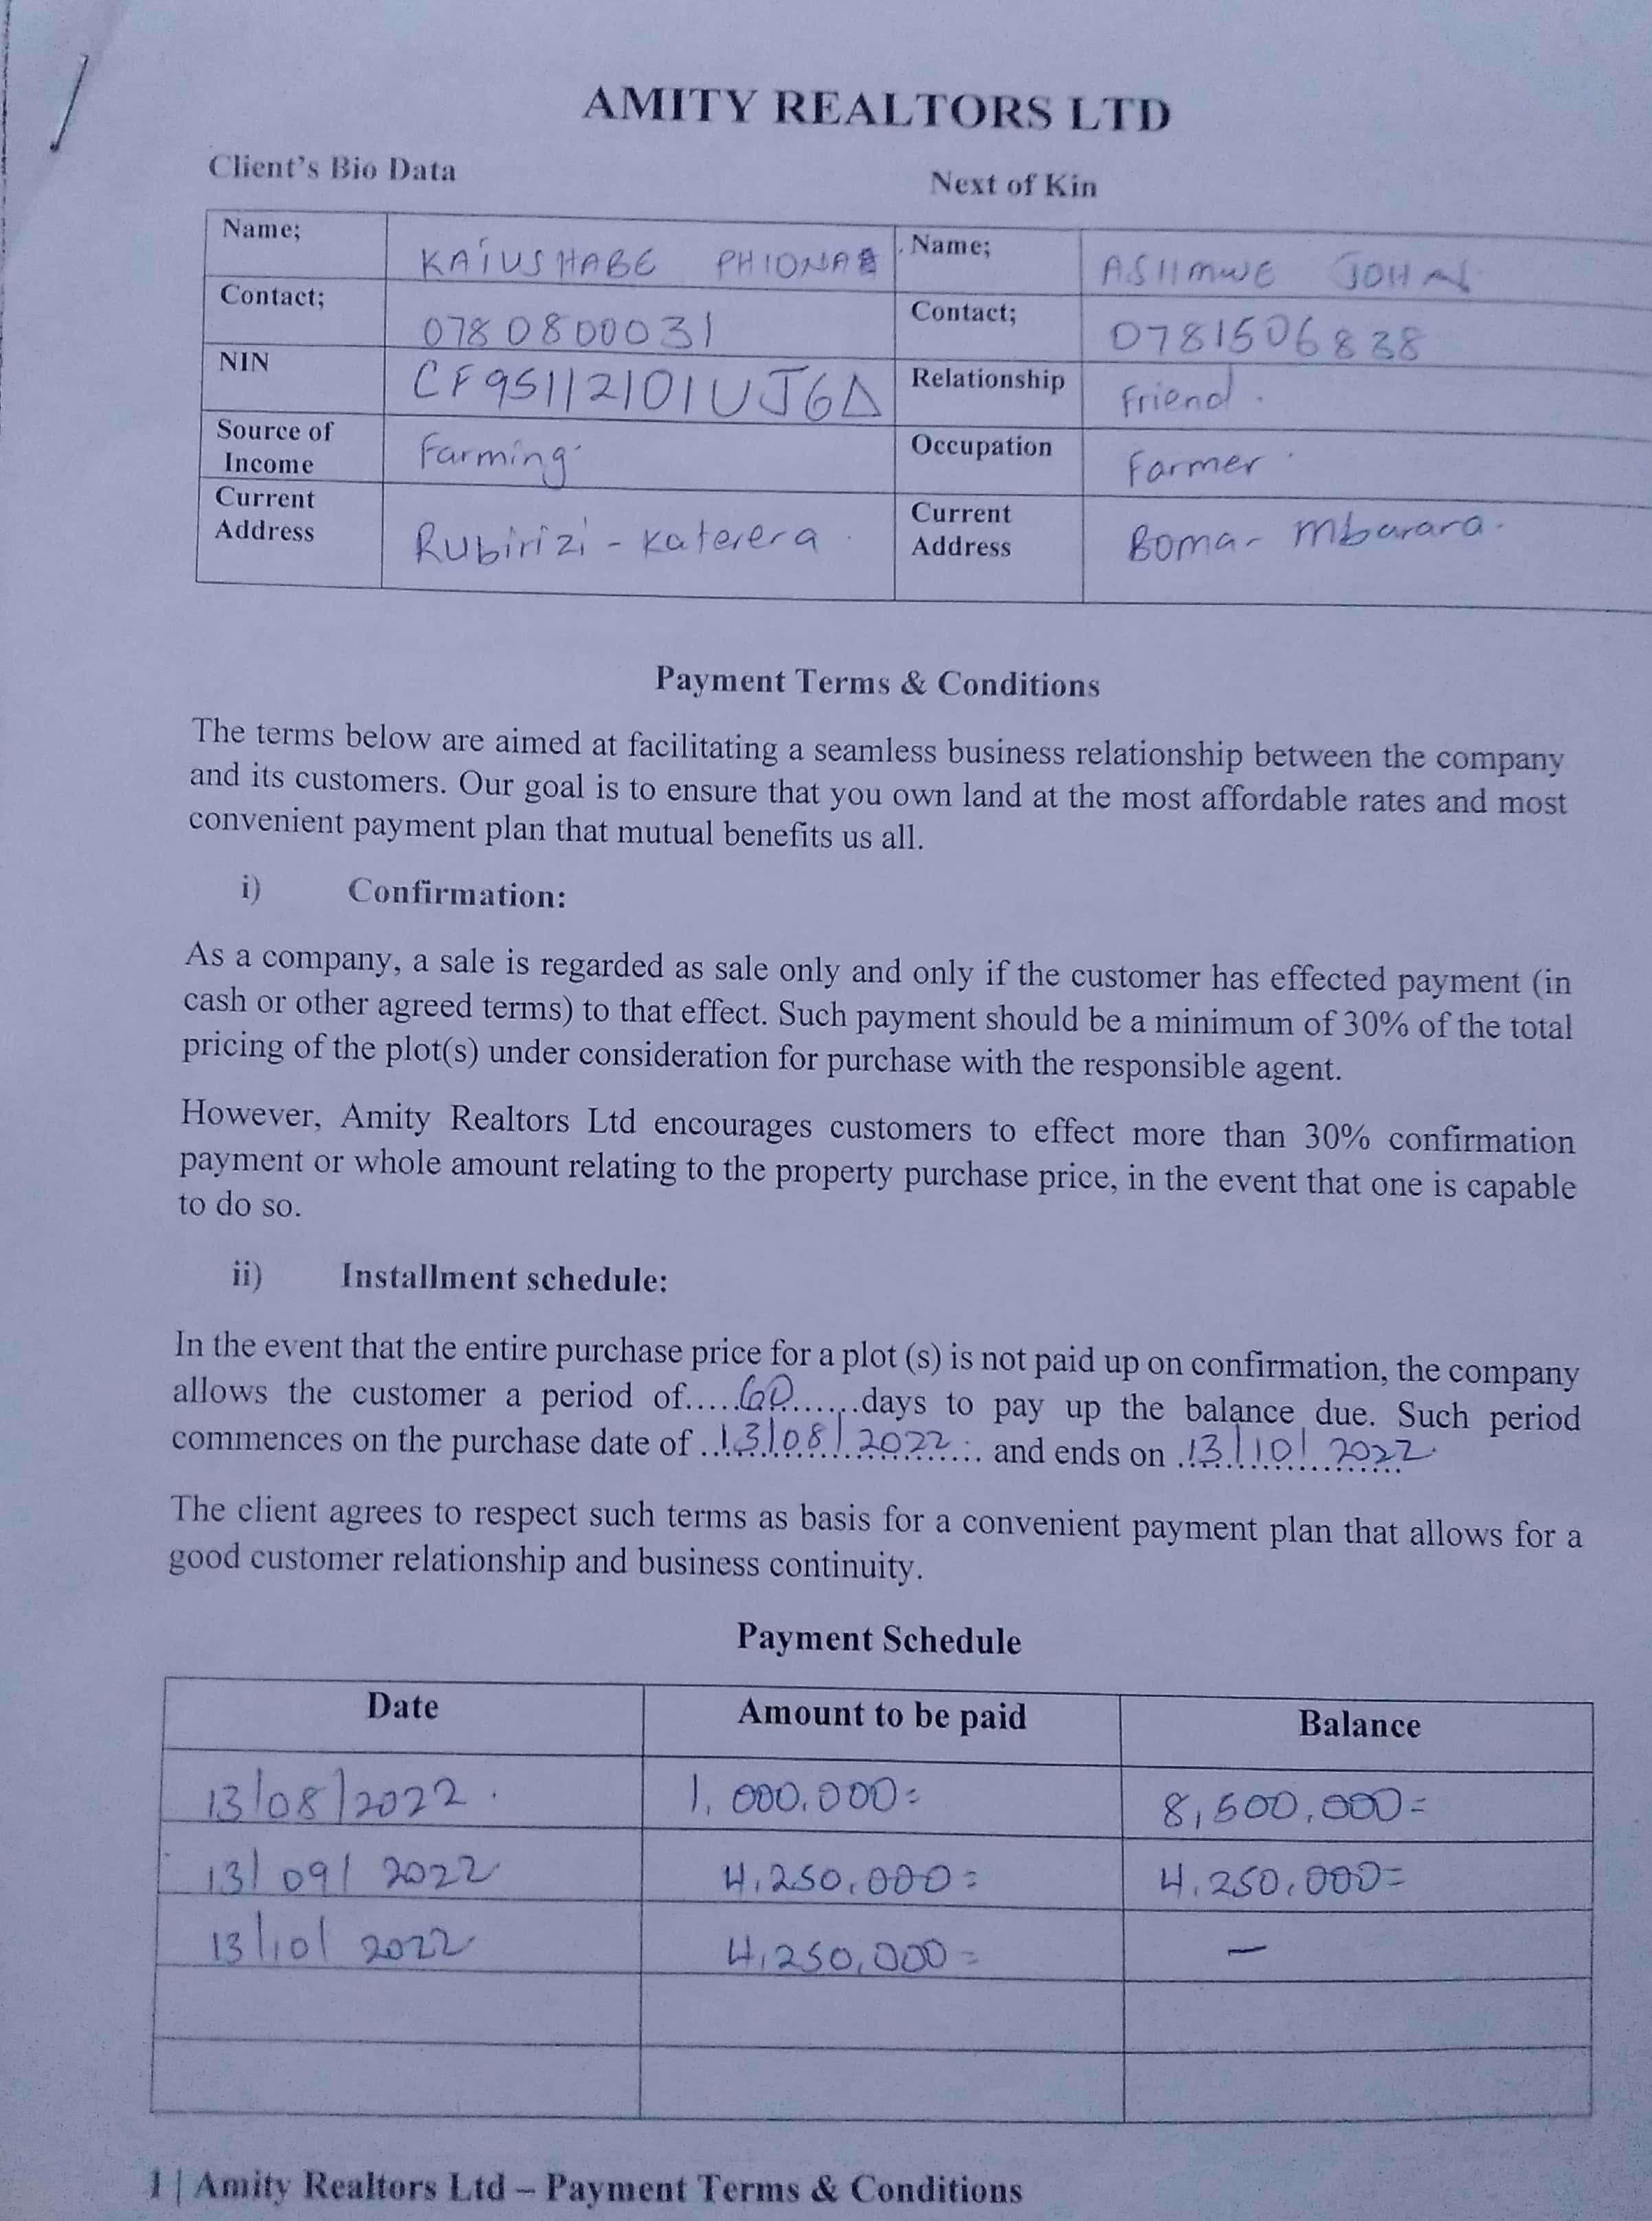 AMITY REALTORS LTD
Client's Bio Data
Next of Kin
Name; KAIUSHABE PHIONA Name; ASIIMWE JOHN
Contact; 0780800031 Contact; 0781506838
NIN CF95112101UJ6A Relationship Friend.
Source of Income Farming Occupation Farmer
Current Address Rubirizi - Katerera Current Address Boma - Mbarara.
Payment Terms & Conditions
The terms below are aimed at facilitating a seamless business relationship between the company
and its customers. Our goal is to ensure that you own land at the most affordable rates and most
convenient payment plan that mutual benefits us all.
i) Confirmation:
As a company, a sale is regarded as sale only and only if the customer has effected payment (in
cash or other agreed terms) to that effect. Such payment should be a minimum of 30% of the total
pricing of the plot(s) under consideration for purchase with the responsible agent.
However, Amity Realtors Ltd encourages customers to effect more than 30% confirmation
payment or whole amount relating to the property purchase price, in the event that one is capable
to do so.
ii) Installment schedule:
In the event that the entire purchase price for a plot (s) is not paid up on confirmation, the company
allows the customer a period of.....60......days to pay up the balance due. Such period
commences on the purchase date of ..13/08/2022... and ends on .13/10/2022.
The client agrees to respect such terms as basis for a convenient payment plan that allows for a
good customer relationship and business continuity.
Payment Schedule
Date Amount to be paid Balance
13/08/2022. 1,000,000= 8,500,000=
13/09/2022 4,250,000= 4,250,000=
13/10/2022 4,250,000= —
1 | Amity Realtors Ltd – Payment Terms & Conditions